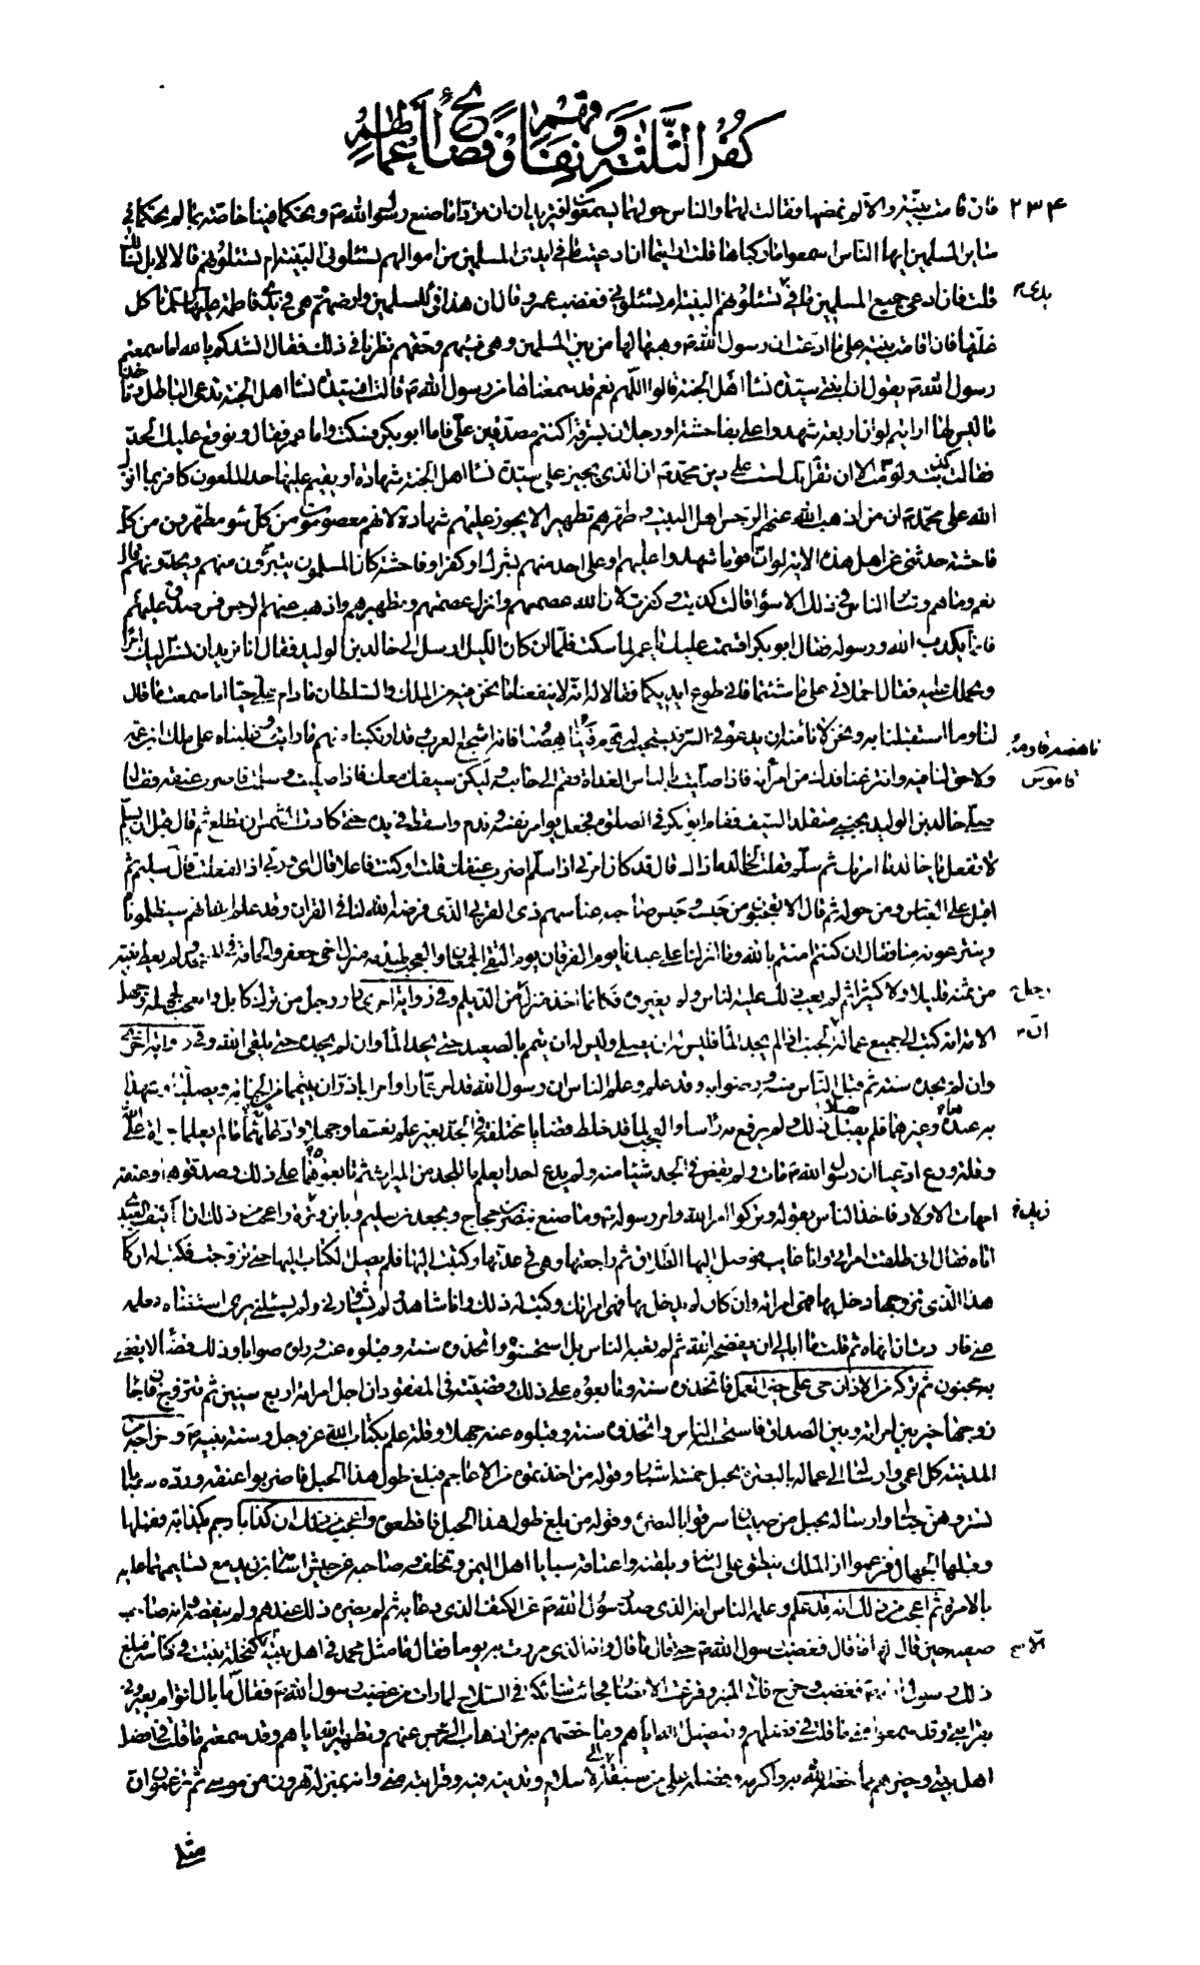 كفر الثلاثة و نفاقهم و فضائح أعمالهم
٢٣۴ فان قامت بينة والا لم نمضها فقالت لهما والناس حولهما يسمعون افتريدان ان تردا ما صنع رسول الله ص و تحكما فينا خاصة بما لم تحكما في
سائر المسلمين ايها الناس اسمعوا ما ركباها قلت ارايتما ان ادعيت ما في ايدى المسلمين من اموالهم تسئلونى البينة ام تسئلونهم قالا لا بل نسئلك
قلت فان ادعى جميع المسلمين ما في يدى تسئلونهم البينة ام تسئلونى فغضب عمر و قال ان هذا فئ للمسلمين وارضهم و هي في يدى فاطمة تاكل
غلتها فان اقامت بينة على ما ادعت ان رسول الله ص وهبها لها من بين المسلمين وهي فيئهم وحقهم نظرنا في ذلك فقال انشدكم بالله اما سمعتم
رسول الله ص يقول ان ابنتى سيدة نساء اهل الجنة قالوا اللهم نعم قد سمعناها من رسول الله ص قالت افسيدة نساء اهل الجنة تدعى الباطل و تاخذ
ما ليس لها ارايتم لو ان اربعة شهدوا على بفاحشة او رجلان بسرقة اكنتم مصدقين على فاما ابو بكر فسكت واما عمر فقال و نوقع عليك الحد
فقالت كذبت و لؤمت الا ان تقر انك لست على دين محمد ص ان الذى يجيز على سيدة نساء اهل الجنة شهادة او يقيم عليها حدا لملعون كافر بما انزل
الله على محمد ص ان من اذهب الله عنهم الرجس اهل البيت و طهرهم تطهيرا لا يجوز عليهم شهادة لانهم معصومون من كل سوء مطهرون من كل
فاحشة حدثنى عن اهل هذه الاية لو ان قوما شهدوا عليهم او على احد منهم بشرك او كفر او فاحشة كان المسلمون يتبرؤن منهم و يحدونهم قال
نعم و ما هم و سائر الناس في ذلك الا سواء قالت كذبت و كفرت لان الله عصمهم وانزل عصمتهم و تطهيرهم واذهب عنهم الرجس فمن صدق عليهم
فانما يكذب الله و رسوله فقال ابو بكر اقسمت عليك يا عمر لما سكت فلما ان كان الليل ارسل الى خالد بن الوليد فقال انا نريد ان نسر اليك امرا
و نحملك عليه فقال احملانى على ما شئتما فانى طوع ايديكما فقالا له انه لا ينفعنا ما نحن فيه من الملك والسلطان ما دام على حيا اما سمعت ما قال
لنا وما استقبلنا به و نحن لا نامنه ان يدعو في السر فيستجيب له قوم فيناهضنا فانه اشجع العرب و قد ارتكبنا منهم ما رايت و غلبناه على ملك ابن عمه
ناهضه قاومه قاموس
ولا حق لنا فيه وانتزعنا فدك من امرأته فاذا صليت بالناس الغداة فقم الى جانبه و ليكن سيفك معك فاذا صليت و سلمت فاضرب عنقه فقال
صلى خالد بن الوليد بجنبى متقلد السيف فقام ابو بكر في الصلوة فجعل يؤامر نفسه و ندم واسقط في يده حتى كادت الشمس ان تطلع ثم قال قبل ان يسلم
لا تفعل يا خالد ما امرتك ثم سلم فقلت لخالد ما ذاك قال قد كان امرنى اذا سلم اضرب عنقك قلت او كنت فاعلا قال اى و ربى اذا لفعلت قال سليم ثم
اقبل على العباس و من حوله ثم قال الا تعجبون من حبسه و حبس صاحبه عنا سهم ذى القربى الذى فرضه الله لنا في القران و قد علم الله انهم سيظلموناه
و ينتزعونه منا فقال ان كنتم امنتم بالله وما انزلنا على عبدنا يوم الفرقان يوم التقى الجمعان والعجب لهدمه منزل اخى جعفر والحاقه في المسجد و لم يعط بنيه
من ثمنه قليلا ولا كثيرا ثم لم يعب ذلك عليه الناس ولم يغيروه فكانما اخذ منزل رجل من الديلم و في رواية اخرى دار رجل من ترك كابل والعجب لجهله و جهل
الامة انه كتب الى جميع عماله ان الجنب اذا لم يجد الماء فليس له ان يصلى و ليس له ان يتيمم بالصعيد حتى يجد الماء وان لم يجده حتى يلقى الله و في رواية اخرى
وان لم يجده سنة ثم قبل الناس منه و رضوا به و قد علم و علم الناس ان رسول الله قد امر عمارا وامر ابا ذر ان يتيمما من الجنابة و يصليا و شهدا
به عنده و غيرهما فلم يقبل ذلك و لم يرفع به راسا والعجب لما قد خلط قضايا مختلفة في الجد بغير علم تعسفا و جهلا و ادعائهما ما لم يعلما جراة على الله
و قلة ورع ادعيا ان رسول الله ص مات و لم يقض في الجد شيئا منه و لم يدع احدا يعلم ما للجد من الميراث ثم تابعوهما على ذلك و صدقوهما و عتقه
امهات الاولاد فاخذ الناس بقوله و تركوا امر الله وامر رسوله ص وما صنع بنصر بن حجاج و بجعدة بن سليم و بابن وبرة واعجب من ذلك ان ابا كنف العبدى
اتاه فقال انى طلقت امراتى وانا غائب فوصل اليها الطلاق ثم راجعتها و هي في عدتها و كتبت اليها فلم يصل الكتاب اليها حتى تزوجت فكتب له ان كان
هذا الذى تزوجها دخل بها فهى امراته وان كان لم يدخل بها فهى امراتك و كتب له ذلك وانا شاهد لم يشاورنى و لم يسئلنى يرى استغناءه بعلمه
عنى فاردت ان انهاه ثم قلت ما ابالى ان يفضحه الله ثم لم تعبه الناس بل استحسنوه واتخذوه سنة و قبلوه عنه و راوه صوابا و ذلك قضاء لا يقضى
به مجنون ثم تركه من الاذان حى على خير العمل فاتخذوه سنة و تابعوه على ذلك و قضيته في المفقود ان اجل امراته اربع سنين ثم تتزوج فان جاء
زوجها خير بين امراته و بين الصداق فاستحسنه الناس واتخذوه سنة و قبلوه عنه جهلا و قلة علم بكتاب الله عز و جل و سنة نبيه ص و اخراجه من
المدينة كل اعمى وارساله الى عماله بالبصرة بحبل خمسة اشبار و قوله من اخذتموه من الاعاجم فبلغ طول هذا الحبل فاضربوا عنقه ورده سبايا
تستر و هن حبالى وارساله بحبل من صبيان سرقوا بالبصرة و قوله من بلغ طول هذا الحبل فاقطعوه واعجب من ذلك ان كذابا رجم بكذابة فقبلها
و قبلها الجهال فزعموا ان الملك ينطق على لسانه و يلقنه واعتاقه سبايا اهل اليمن و تخلفه و صاحبه عن جيش اسامة بن زيد مع تسليمهما عليه
بالامرة ثم اعجب من ذلك انه قد علم و علمه الناس انه الذى صد رسول الله ص عن الكتف الذى دعا به ثم لم يضره ذلك عندهم و لم ينقصه وانه صاحب
صفية حين قال لها ما قال فغضب رسول الله ص حتى قال ما قال وانه الذى مررت به يوما فقال ما مثل محمد في اهل بيته الا كنخلة نبتت في كناسة فبلغ
ذلك رسول الله ص فغضب و خرج فاتى المنبر و فزعت الانصار فجائت شاكة في السلاح لما رات من غضب رسول الله ص فقال ما بال اقوام يعيرونى
بقرابتى و قد سمعوا منى ما قلت في فضلهم و تفضيل الله اياهم وما خصهم به من اذهاب الرجس عنهم و تطهير الله اياهم و قد سمعتم ما قلت في افضل
اهل بيتى و خيرهم مما خصه الله به واكرمه و فضله على من سبقه الى الاسلام و تدينه فيه و قرابته منى وانه بمنزلة هرون من موسى ثم تزعمون ان
مثلى